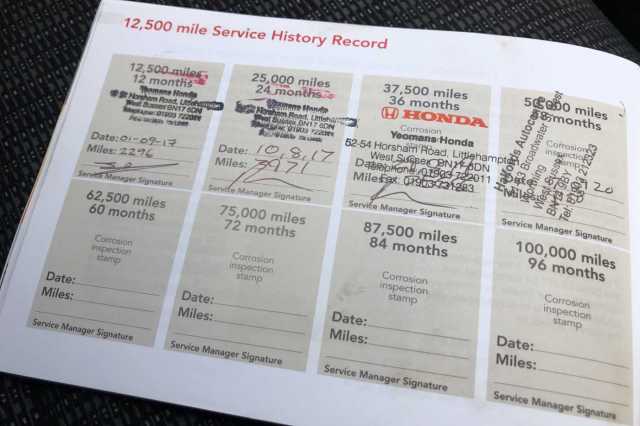 12,500 mile Service History Record
12,500 miles
12 months
Yeomans Honda
Horsham Road, Littlehampton
West Sussex BN17 6DN
Date: 01-09-17
Miles: 2296
Service Manager Signature
25,000 miles
24 months
Yeomans Honda
Horsham Road, Littlehampton
West Sussex BN17 6DN
Date: 10,8,17
Miles: 3971
Service Manager Signature
37,500 miles
36 months
HONDA
Corrosion
Yeomans Honda
52-54 Horsham Road, Littlehampton
West Sussex BN17 6DN
Telephone: 01903 722011
Fax: 01903 721283
Service Manager Signature
50,000 miles
48 months
Corrosion
inspection
stamp
Halfords Autocentre
Service Manager Signature
62,500 miles
60 months
Corrosion
inspection
stamp
Date:
Miles:
Service Manager Signature
75,000 miles
72 months
Corrosion
inspection
stamp
Date:
Miles:
Service Manager Signature
87,500 miles
84 months
Corrosion
inspection
stamp
Date:
Miles:
Service Manager Signature
100,000 miles
96 months
Corrosion
inspection
stamp
Date:
Miles:
Service Manager Signature